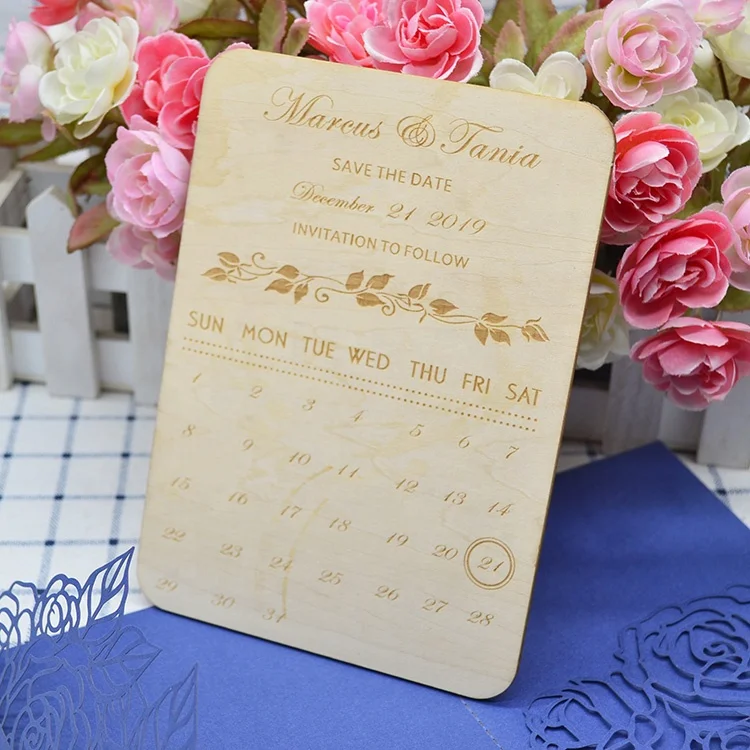 Marcus & Tania
SAVE THE DATE
December 21 2019
INVITATION TO FOLLOW
SUN MON TUE WED THU FRI SAT
1 2 3 4 5 6 7
8 9 10 11 12 13 14
15 16 17 18 19 20 21
22 23 24 25 26 27 28
29 30 31